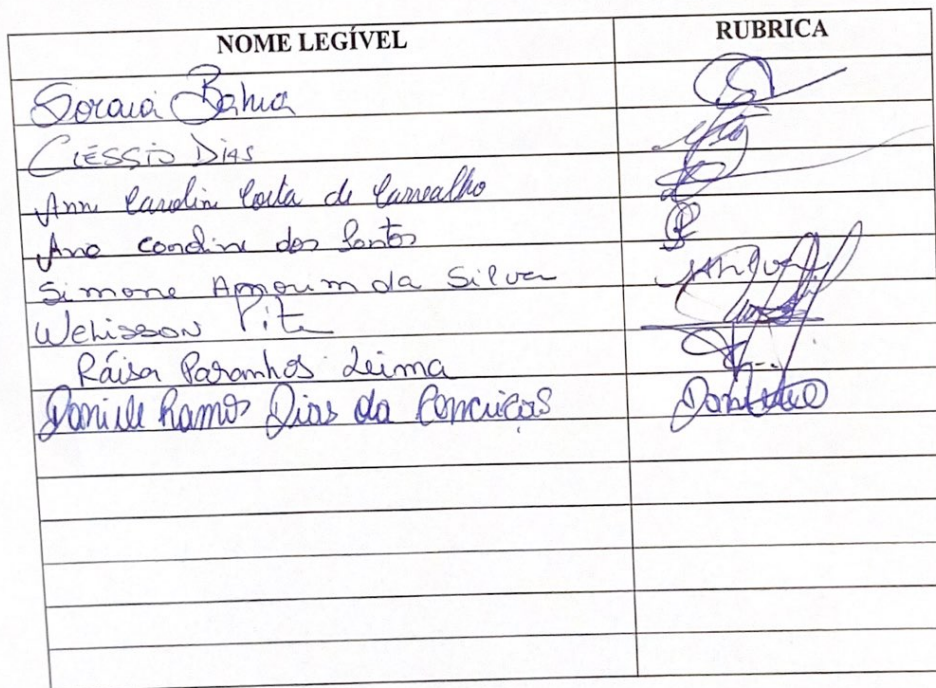 NOME LEGÍVEL RUBRICA
Soraia Bahia
Cléssio Dias
Anne Caroline Costa de Carvalho
Ana Caroline dos Santos
Simone Amorim da Silva
Welisson
Ráisa Paranhos Leima
Daniele Ramos Dias da Conceição